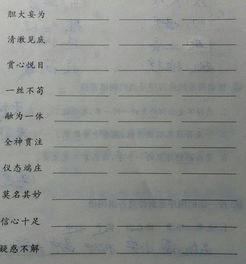 胆大妄为
清澈见底
赏心悦目
一丝不苟
融为一体
全神贯注
仪态端庄
莫名其妙
信心十足
疑惑不解